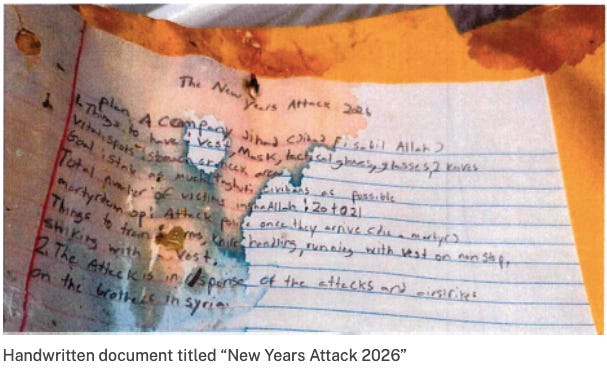 The New Years Attack 2026
Plan A Company Jihad (Jihad Fi sabil Allah)
1. Things to have: vest, Mask, tactical gloves, glasses, 2 knives
vital spots: neck area
Goal: stab as much civilians as possible
Total number of victims inshaAllah: 20 to 21
martyrdom op: Attack police once they arrive (die a martyr)
Things to train: knife handling, running with vest on non stop,
striking with vest.
2. The Attack is in of the attacks and airstrikes
on the brothers in syria.
Handwritten document titled “New Years Attack 2026”